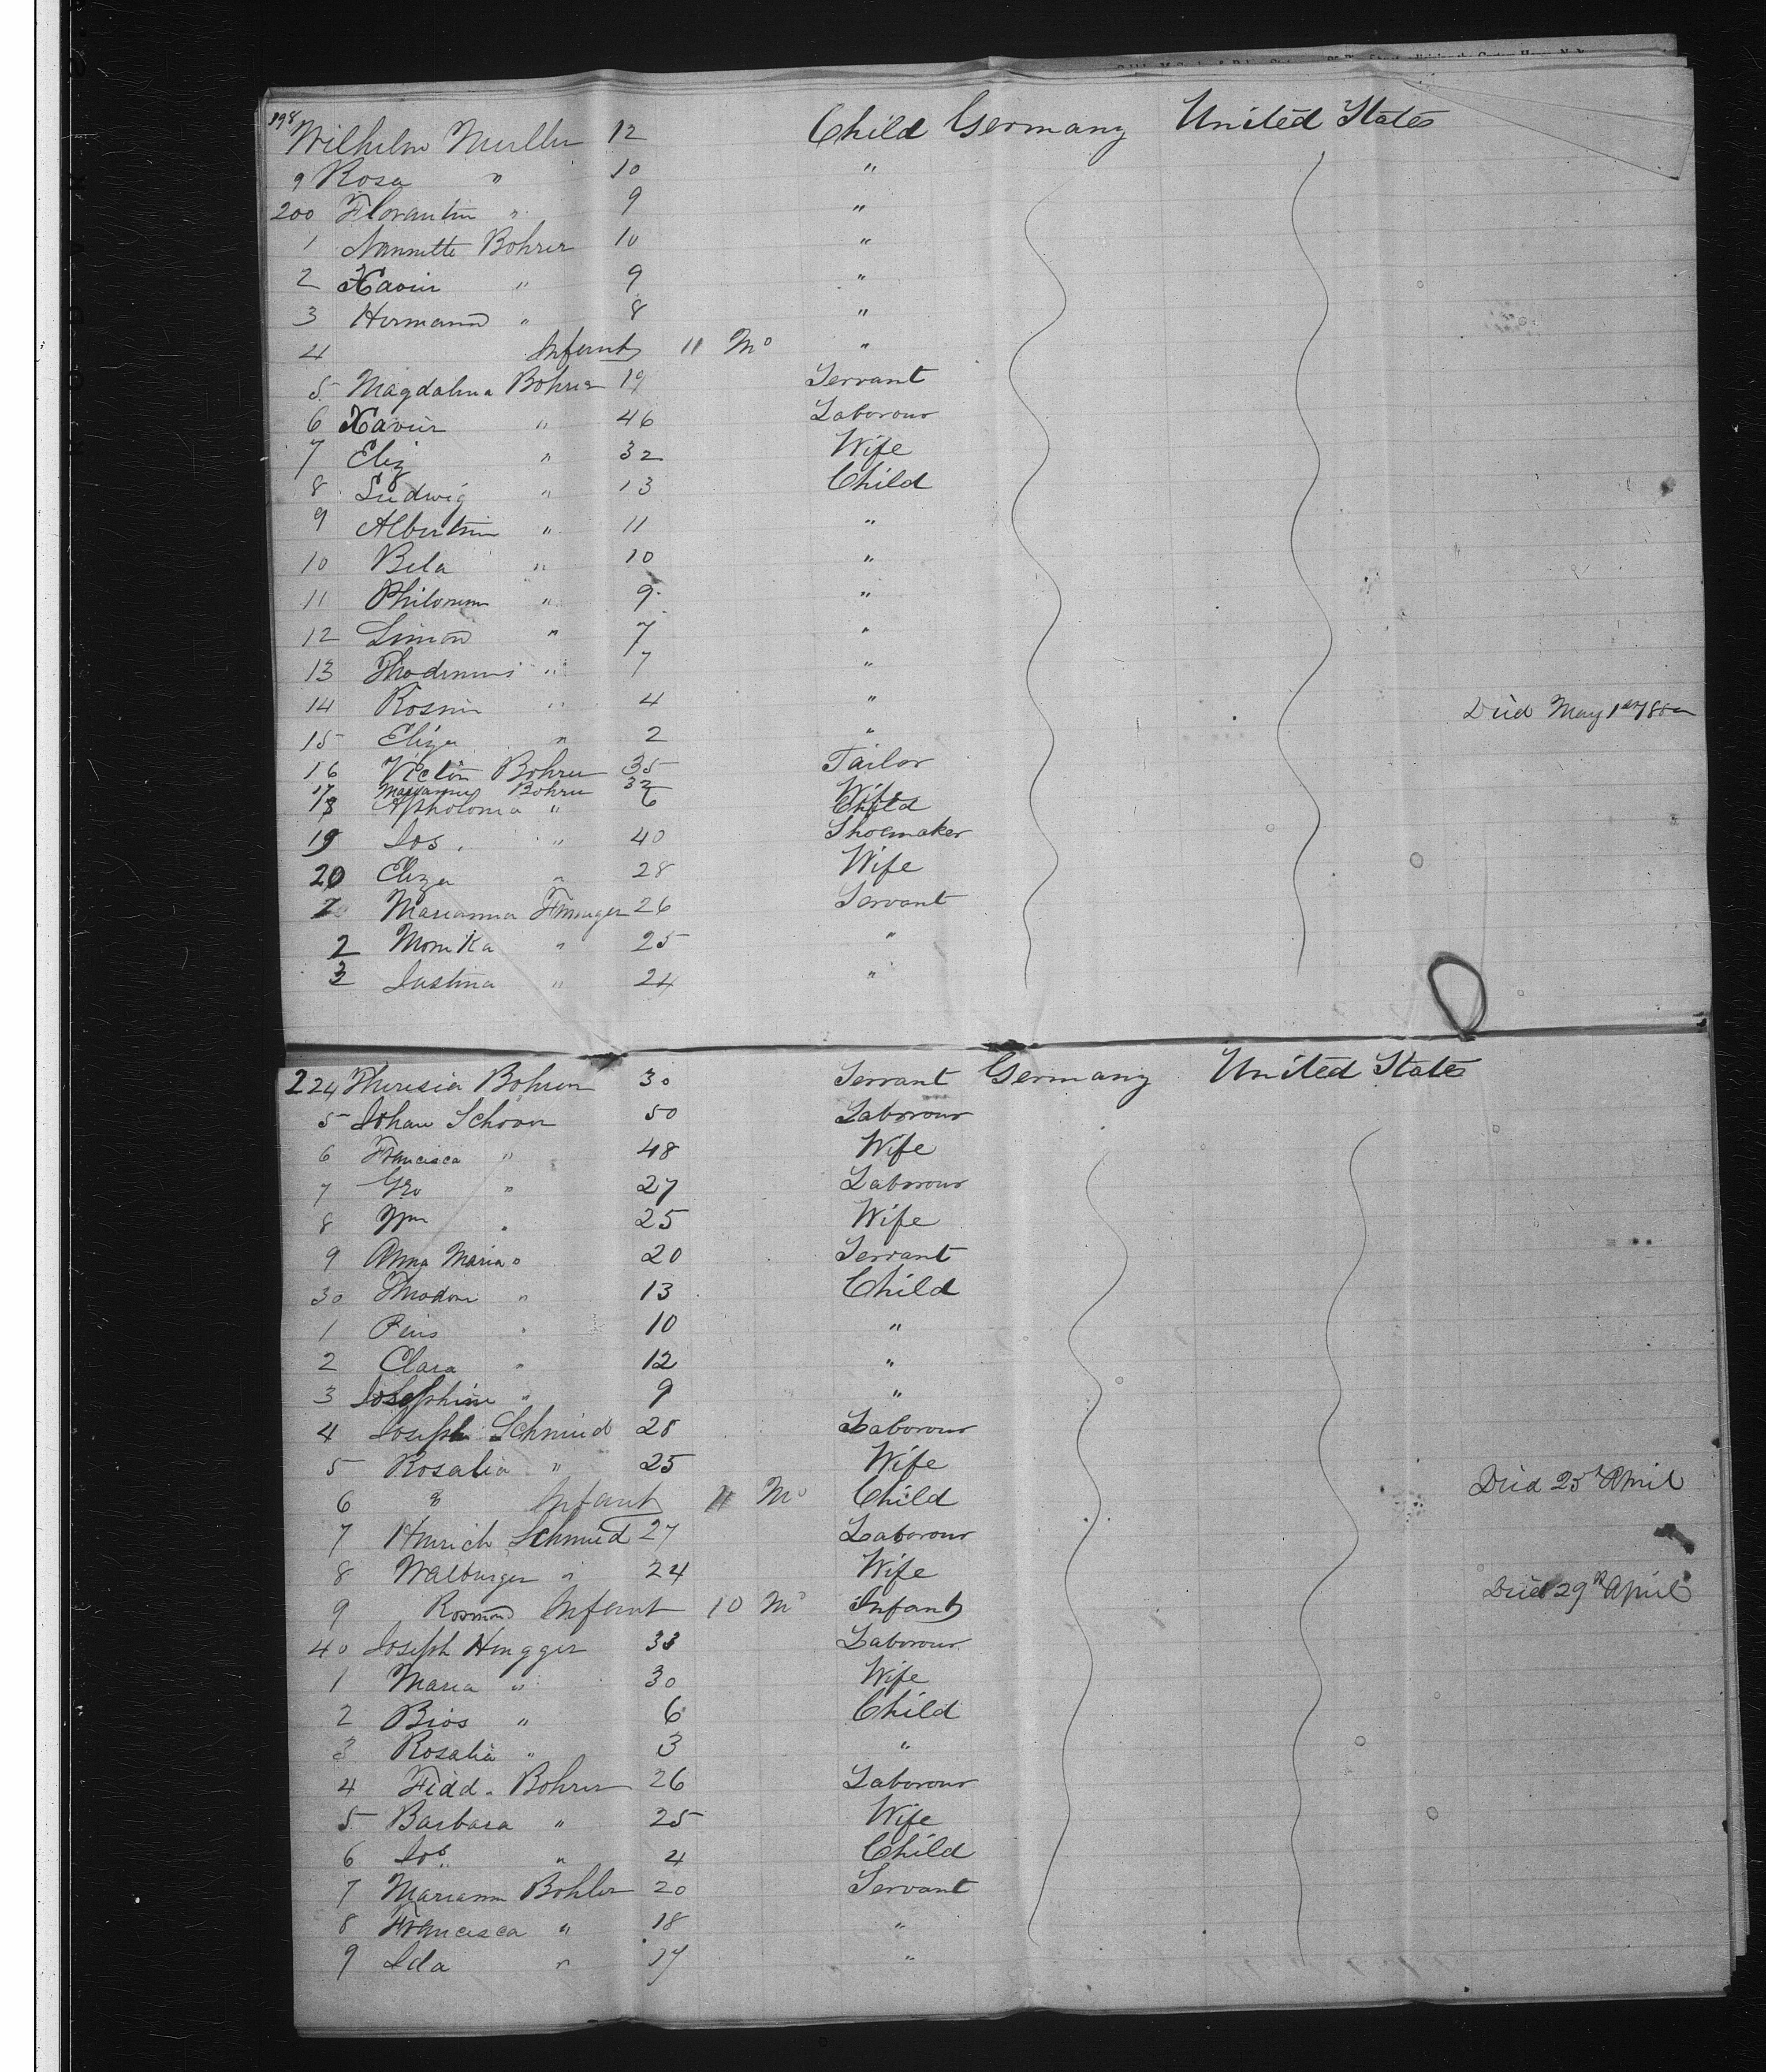 198 Wilhelm Muller 12 Child Germany United States
9 Rosa " 10 "
200 Florantin " 9 "
1 Nannette Bohrer 10 "
2 Xavier " 9 "
3 Hermann " 8 "
4 Infant 11 Mo "
5 Magdalina Bohrer 19 Servant
6 Xavier " 46 Laborour
7 Eliz " 32 Wife
8 Ludwig " 13 Child
9 Albertin " 11 "
10 Bela " 10 "
11 Philomin " 9 "
12 Simon " 7 "
13 " 7 "
14 Rosnir " 4 " Died May 1st
15 Eliza " 2 "
16 Victor Bohrer 35 Tailor
17 Bohrer 32 Wife
18 Apholonia " 6 Child
19 Jos. " 40 Shoemaker
20 Eliza " 28 Wife
Marianna 26 Servant
2 Monika " 25 "
3 Justina " 24 "
224 Theresia Bohrer 30 Servant Germany United States
5 Johan Schorer 50 Laborour
6 Francisca " 48 Wife
7 Geo " 27 Laborour
8 " 25 Wife
9 Anna Maria " 20 Servant
30 Theodor " 13 Child
1 Pius " 10 "
2 Clara " 12 "
3 Josephine " 9 "
4 Joseph Schmid 28 Laborour
5 Rosalia " 25 Wife
6 Infant 11 Mo Child Died 25th April
7 Henrich Schmid 27 Laborour
8 Walburger " 24 Wife
9 Rosmond Infant 10 Mo Infant Died 29th April
40 Joseph Hengger 33 Laborour
1 Maria " 30 Wife
2 Bios " 6 Child
3 Rosalia " 3 "
4 Fidd. Bohrer 26 Laborour
5 Barbara " 25 Wife
6 Jos " 4 Child
7 Mariann Bohler 20 Servant
8 Francisca " 18 "
9 Ida " 17 "